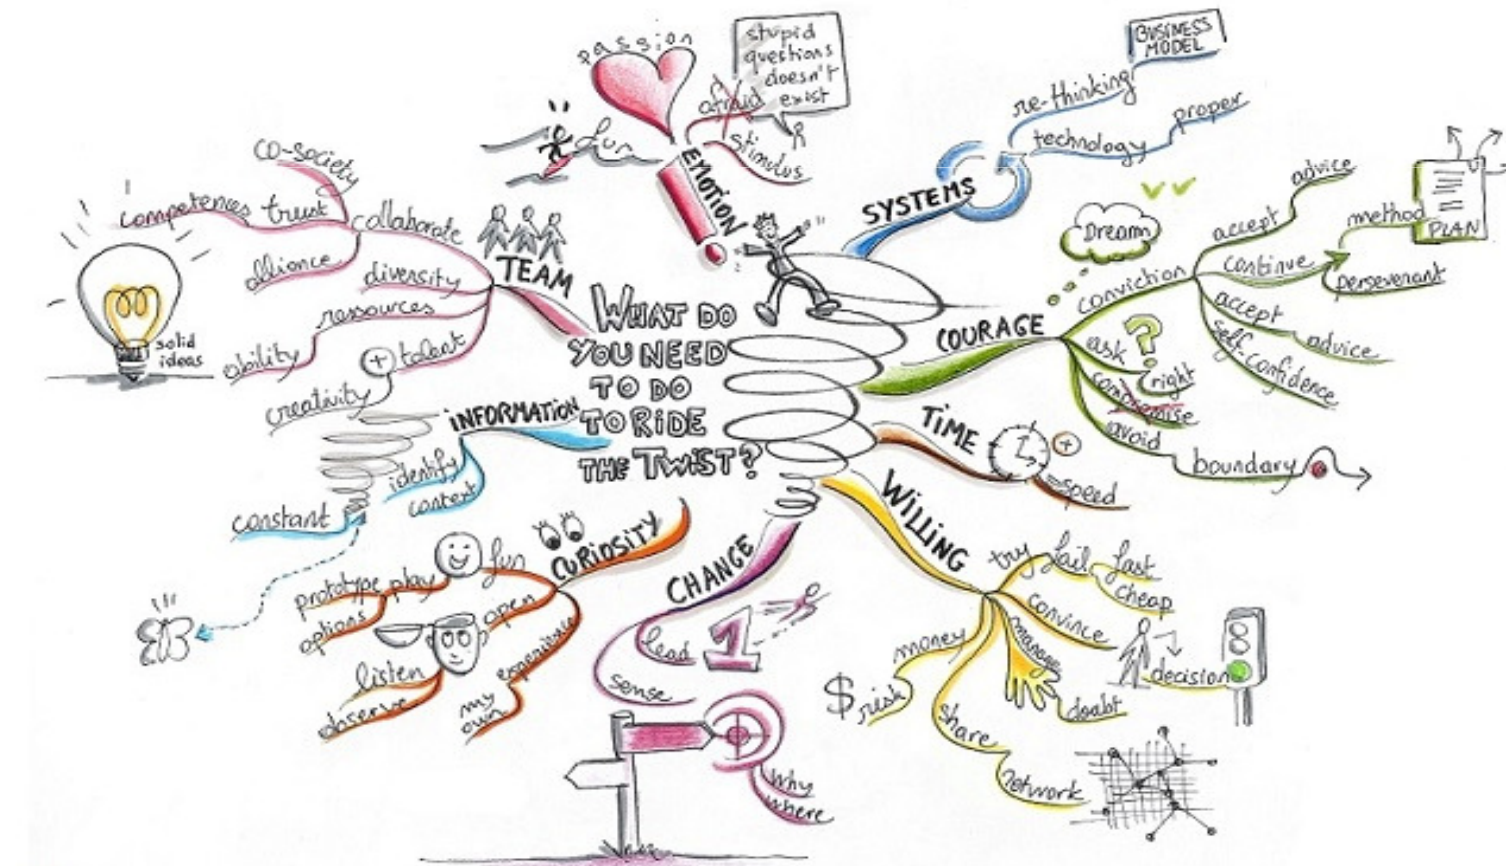 WHAT DO
YOU NEED
TO DO
TO RIDE
THE TWIST?
EMOTION
passion
fun
afraid
stimulus
stupid
questions
doesn't
exist
SYSTEMS
re-thinking
BUSINESS
MODEL
technology
proper
COURAGE
Dream
conviction
accept
advice
continue
method
PLAN
perseverant
accept
advice
self-confidence
ask
?
right
compromise
avoid
boundary
TIME
+
=speed
WILLING
try
fail
fast
cheap
convince
manage
doubt
decision
money
$
risk
share
network
CHANGE
lead
1
sense
why
where
CURIOSITY
fun
play
prototype
options
open
listen
observe
experience
my
own
INFORMATION
identify
context
constant
TEAM
collaborate
co-society
trust
competences
alliance
diversity
ressources
ability
talent
+
creativity
solid
ideas